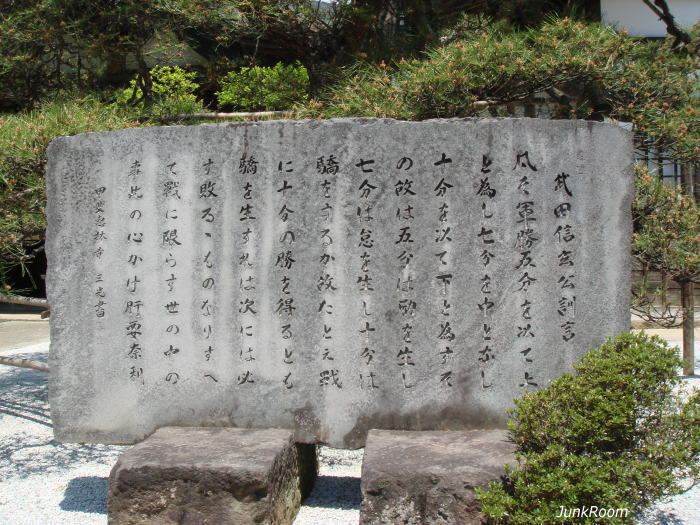 武田信玄公訓言
凡そ軍勝五分を以て上
と為し七分を中と為し
十分を以て下と為す其
の故は五分は励を生し
七分は怠を生し十分は
驕を生するか故たとえ戦
に十分の勝を得るとも
驕を生すれは次には必
す敗るゝものなりすへ
て戦に限らす世の中の
事此の心かけ肝要奈利
甲斐恵林寺
JunkRoom